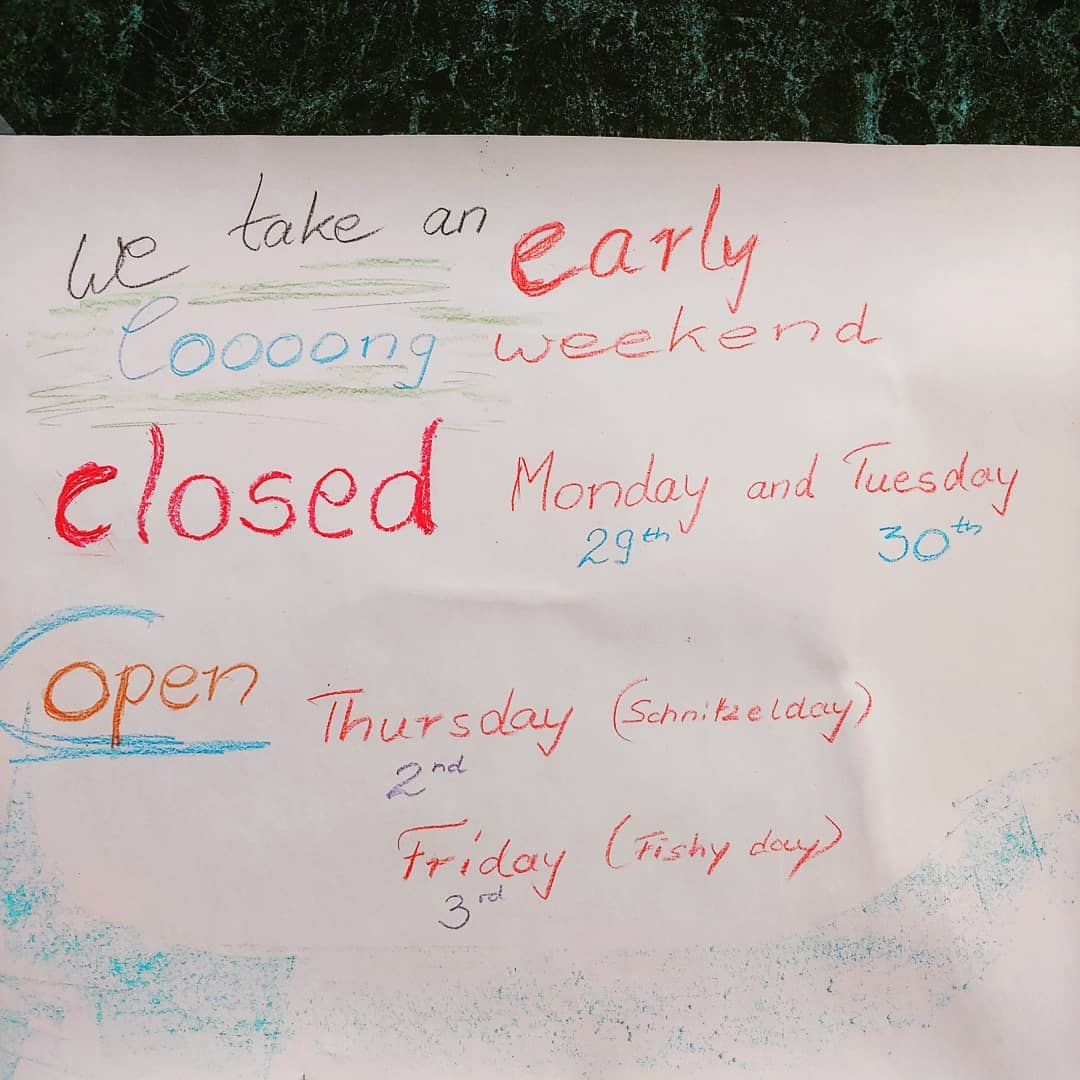 We take an early
loooong weekend
closed Monday and Tuesday
29th 30th
Open Thursday (Schnitzelday)
2nd
Friday (Fishy day)
3rd